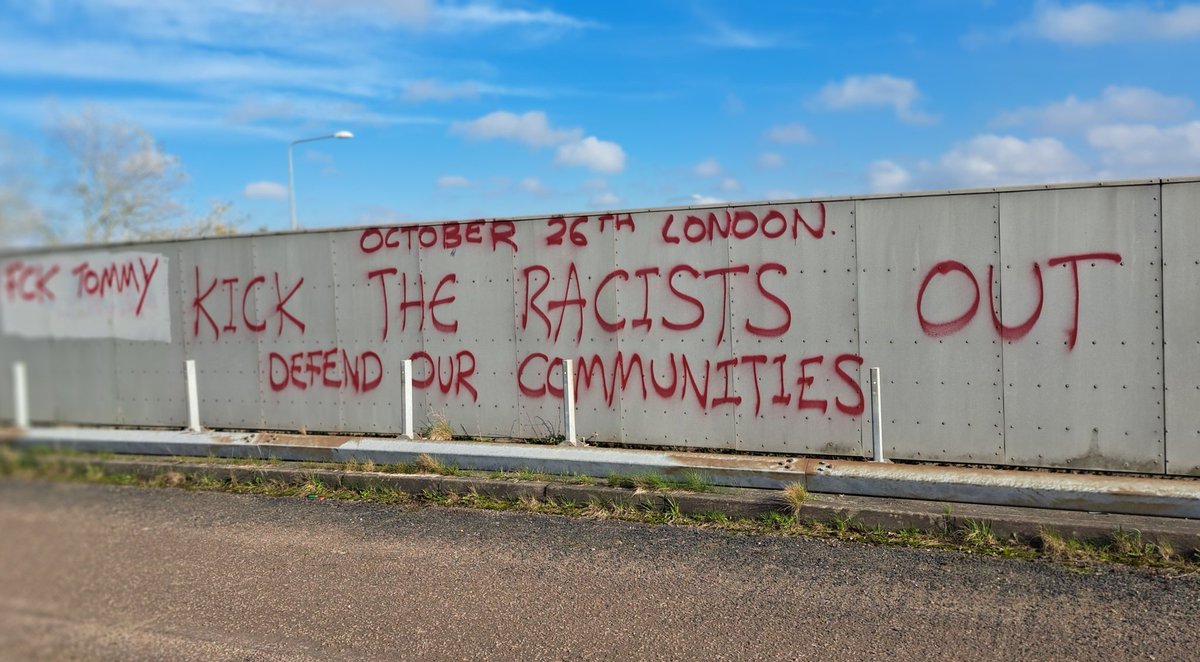 OCTOBER 26TH LONDON.
FCK TOMMY
KICK THE RACISTS OUT
DEFEND OUR COMMUNITIES